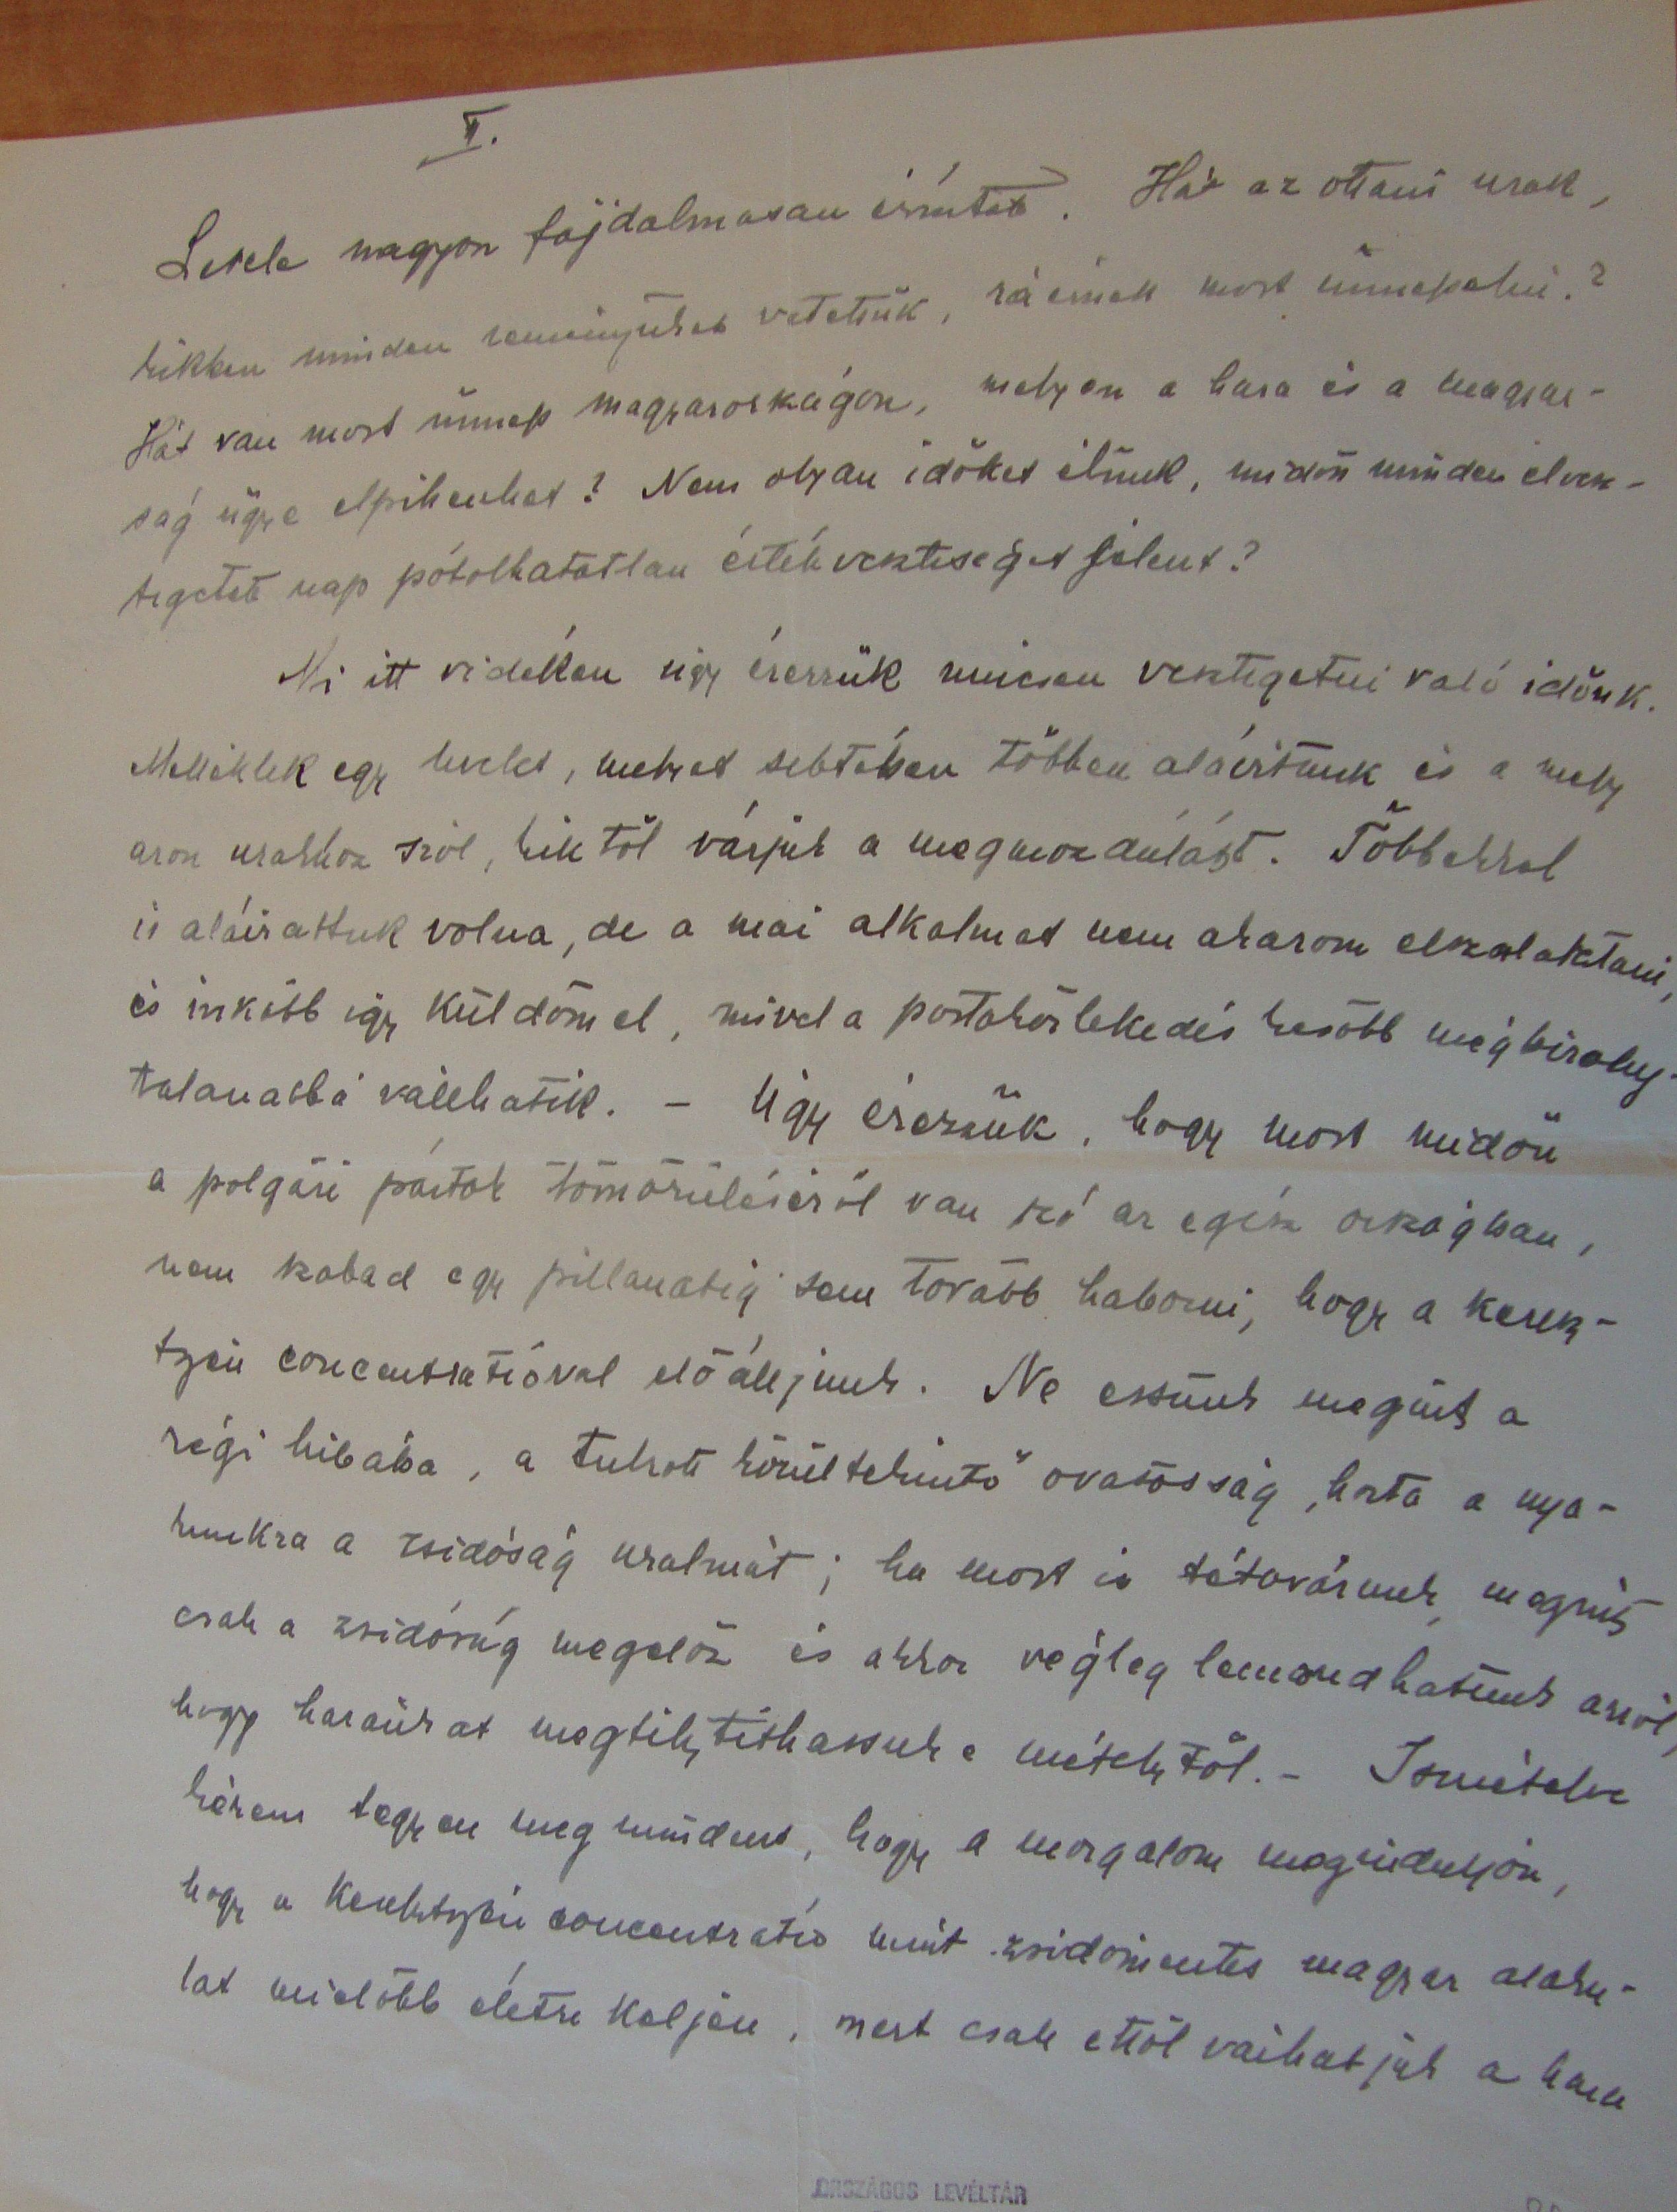 II.
Levele nagyon fájdalmasan érintett. Hát az ottani urak,
kikben minden reményünket vetettük, ráérnek most ünnepelni?
Hát van most ünnep Magyarországon, melyen a haza és a magyar-
ság ügye elpihenhet? Nem olyan időket élünk, midőn minden elvesz-
tegetett nap pótolhatatlan értékveszteséget jelent?
Mi itt vidéken úgy érezzük nincsen vesztegetni való időnk.
Mellékelek egy levelet, melyet sebtében többen aláirtunk és a mely
azon urakhoz szól, kiktől várjuk a megmozdulást. Többekkel
is aláirattuk volna, de a mai alkalmat nem akarom elszalasztani,
és inkább igy küldöm el, mivel a postaközlekedés később még bizony-
talanabbá válhatik. - Úgy érezzük, hogy most midőn
a polgári pártok tömörüléséről van szó az egész országban,
nem szabad egy pillanatig sem tovább habozni, hogy a keresz-
tyén concentratióval előálljunk. Ne essünk megint a
régi hibába, a tulzott körültekintő óvatosság hozta a nya-
kunkra a zsidóság uralmát; ha most is tétovázunk, megint
csak a zsidóság megelőz és akkor végleg lemondhatunk arról,
hogy hazánkat megtisztithassuk e métélytől. - Ismételve
kérem tegyen meg mindent, hogy a mozgalom meginduljon,
hogy a keresztyén concentratio mint zsidómentes magyar alaku-
lat mielőbb életre keljen, mert csak ettől várhatjuk a haza
ORSZÁGOS LEVÉLTÁR